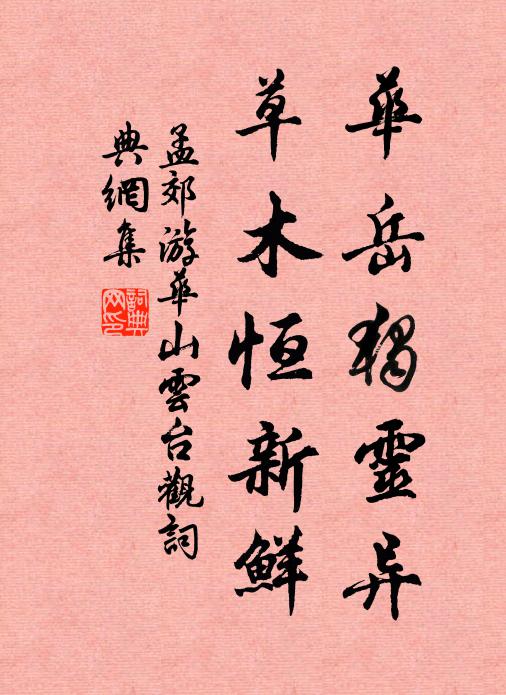 華岳獨靈异
草木恒新鮮
孟郊游華山雲台觀詞
典網集
詞典
网印